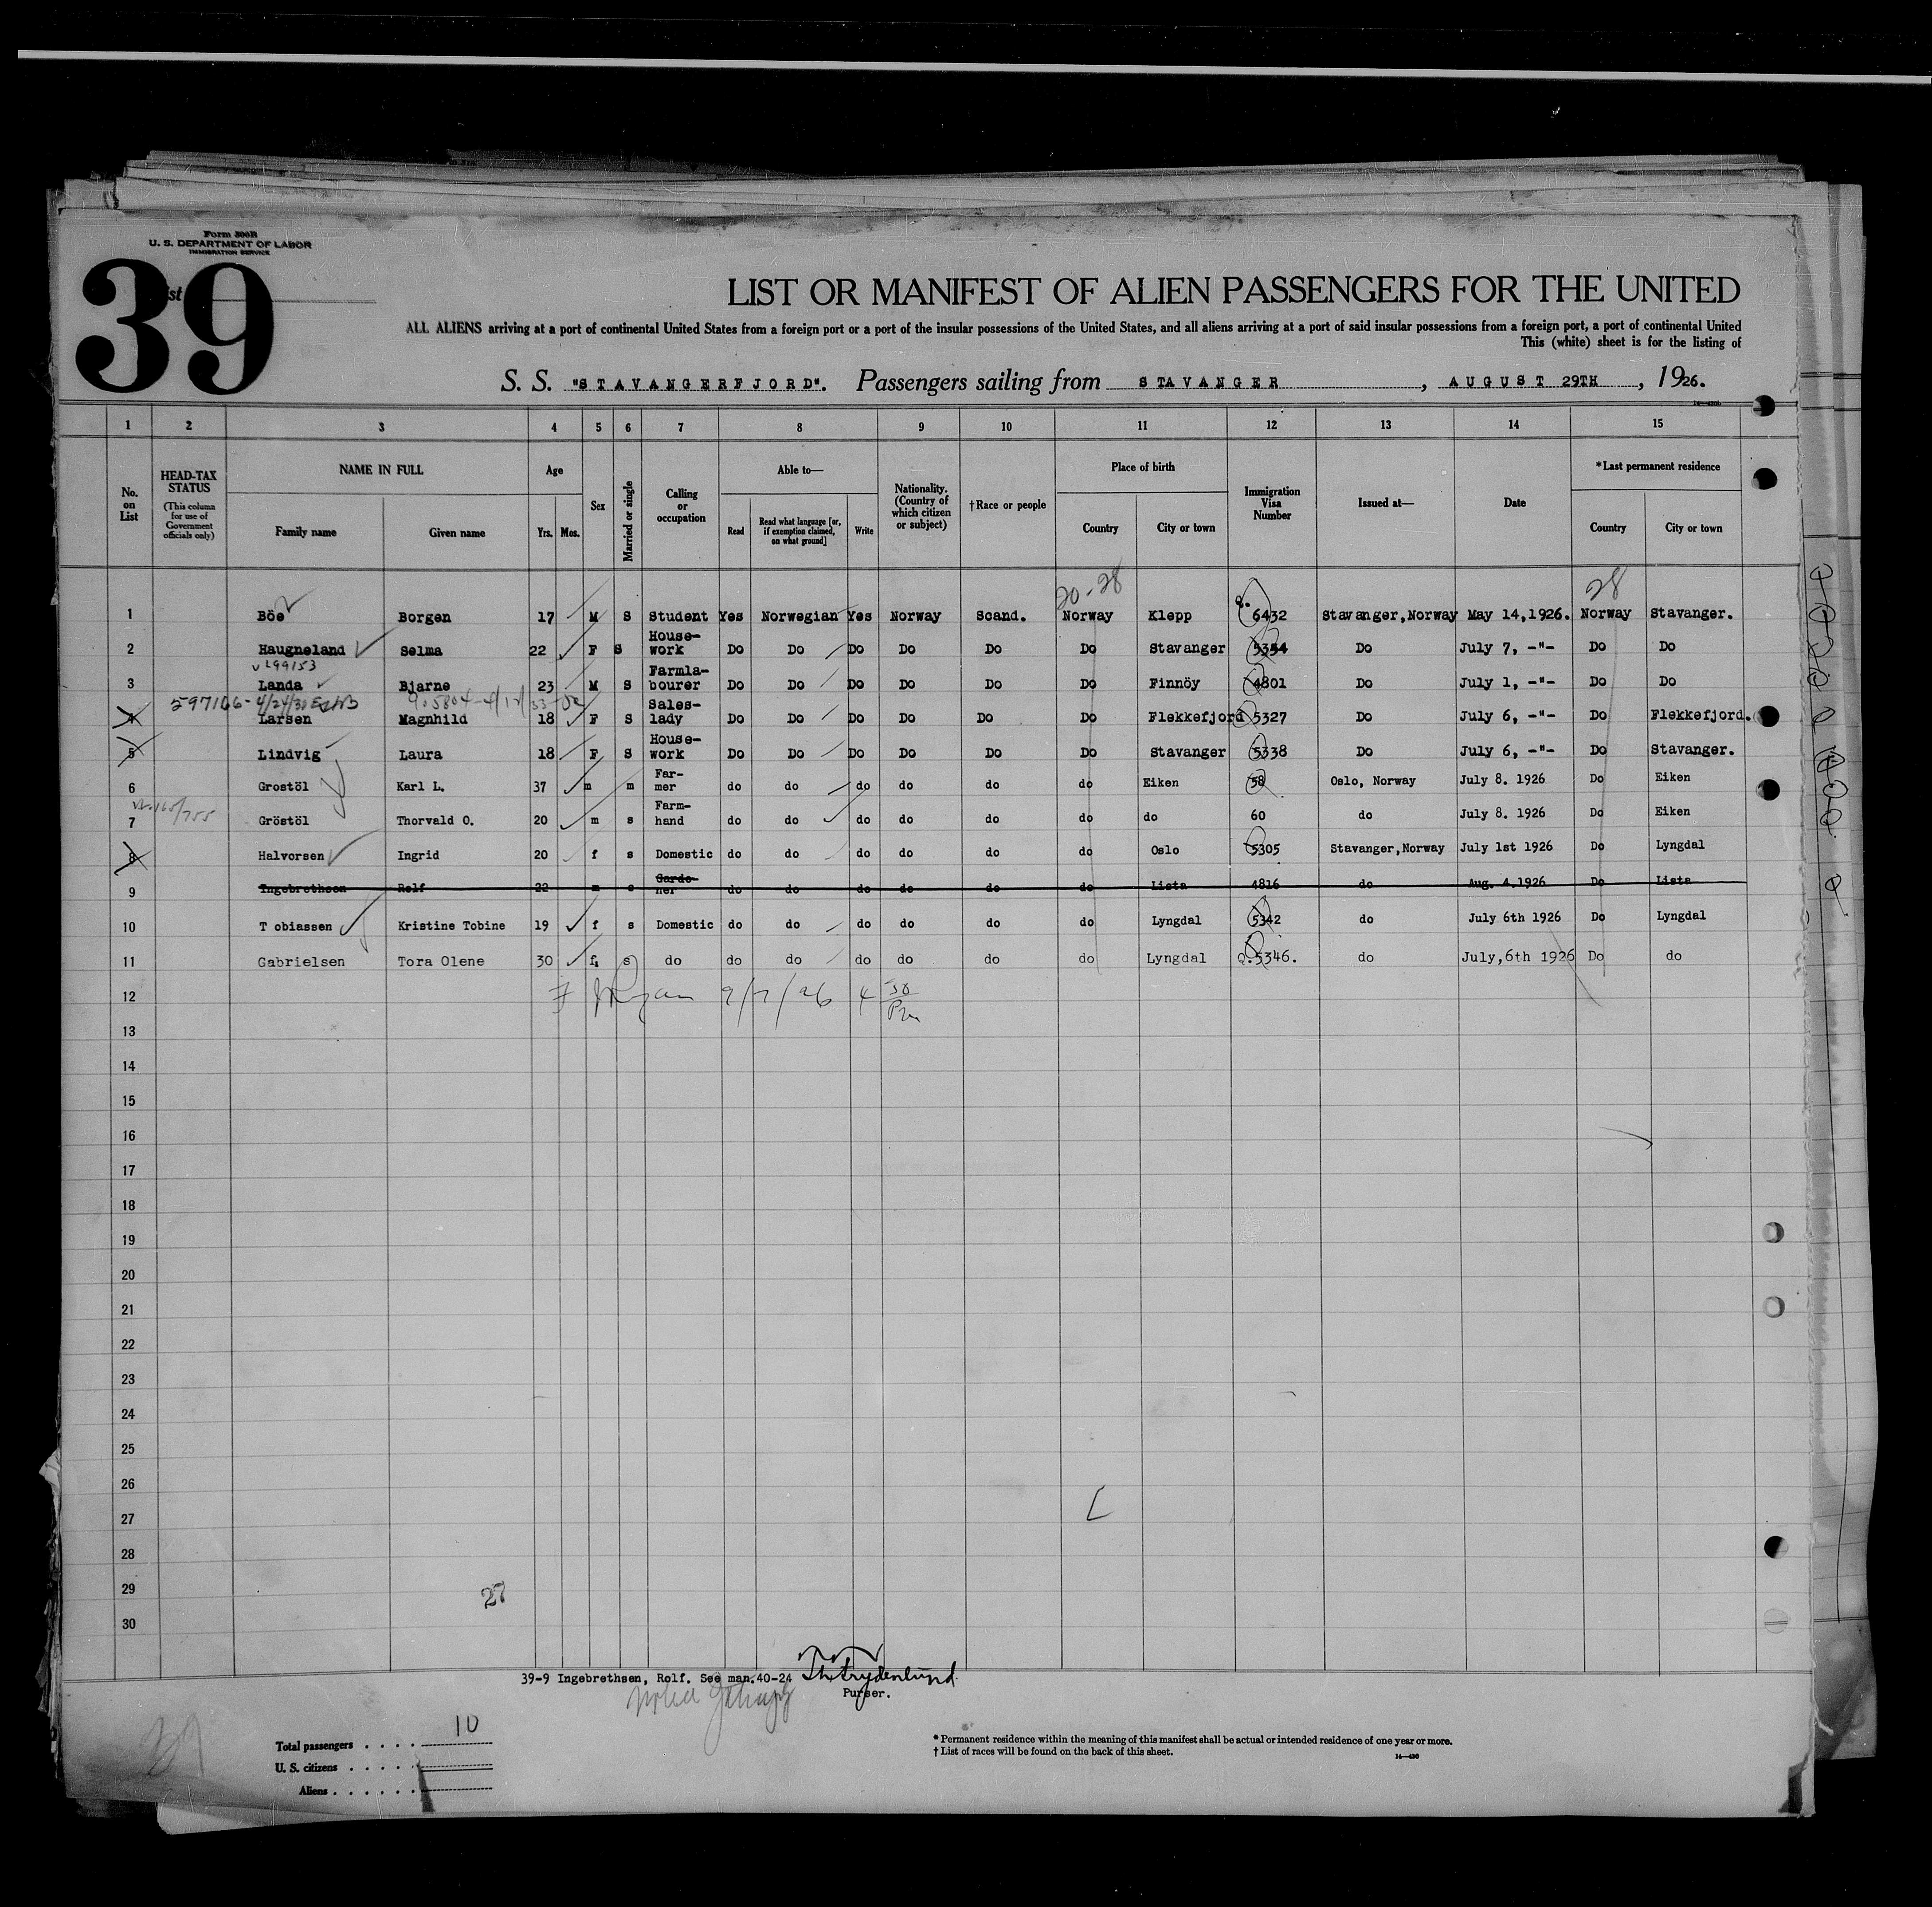 Form 500B
U. S. DEPARTMENT OF LABOR
IMMIGRATION SERVICE
39
LIST OR MANIFEST OF ALIEN PASSENGERS FOR THE UNITED
ALL ALIENS arriving at a port of continental United States from a foreign port or a port of the insular possessions of the United States, and all aliens arriving at a port of said insular possessions from a foreign port, a port of continental United
This (white) sheet is for the listing of
S. S. "STAVANGERFJORD". Passengers sailing from STAVANGER, AUGUST 29TH, 1926.
1 2 3 4 5 6 7 8 9 10 11 12 13 14 15
No. on List
HEAD-TAX STATUS (This column for use of Government officials only)
NAME IN FULL Family name Given name
Age Yrs. Mos.
Sex
Married or single
Calling or occupation
Able to— Read Read what language [or, if exemption claimed, on what ground] Write
Nationality. (Country of which citizen or subject)
†Race or people
Place of birth Country City or town
Immigration Visa Number
Issued at—
Date
*Last permanent residence Country City or town
20-28 28
1 Böe Borgen 17 M S Student Yes Norwegian Yes Norway Scand. Norway Klepp 6432 Stavanger,Norway May 14,1926. Norway Stavanger.
2 Haugneland Selma 22 F S House-work Do Do Do Do Do Do Stavanger 5354 Do July 7, -"- Do Do
3 Landa Bjarne 23 M S Farmla-bourer Do Do Do Do Do Do Finnöy 4801 Do July 1, -"- Do Do
4 Larsen Magnhild 18 F S Sales-lady Do Do Do Do Do Do Flekkefjord 5327 Do July 6, -"- Do Flekkefjord.
5 Lindvig Laura 18 F S House-work Do Do Do Do Do Do Stavanger 5338 Do July 6, -"- Do Stavanger.
6 Grostöl Karl L. 37 m m Far-mer do do do do do do Eiken 58 Oslo, Norway July 8. 1926 Do Eiken
7 Gröstöl Thorvald O. 20 m s Farm-hand do do do do do do do 60 do July 8. 1926 Do Eiken
8 Halvorsen Ingrid 20 f s Domestic do do do do do do Oslo 5305 Stavanger,Norway July 1st 1926 Do Lyngdal
9 Ingebrethsen Rolf 22 m s Garde-ner do do do do do do Lista 4816 do Aug. 4.1926 Do Lista
10 Tobiassen Kristine Tobine 19 f s Domestic do do do do do do Lyngdal 5342 do July 6th 1926 Do Lyngdal
11 Gabrielsen Tora Olene 30 f. s do do do do do do do Lyngdal 5346. do July,6th 1926 Do do
12 9/7/26 4 30 Pm
13
14
15
16
17
18
19
20
21
22
23
24
25
26
27
28
29
30
27
39-9 Ingebrethsen, Rolf. See man.40-24
Purser.
Total passengers . . . . 10
U. S. citizens . . . . .
Aliens . . . . . .
* Permanent residence within the meaning of this manifest shall be actual or intended residence of one year or more.
† List of races will be found on the back of this sheet.
14—430